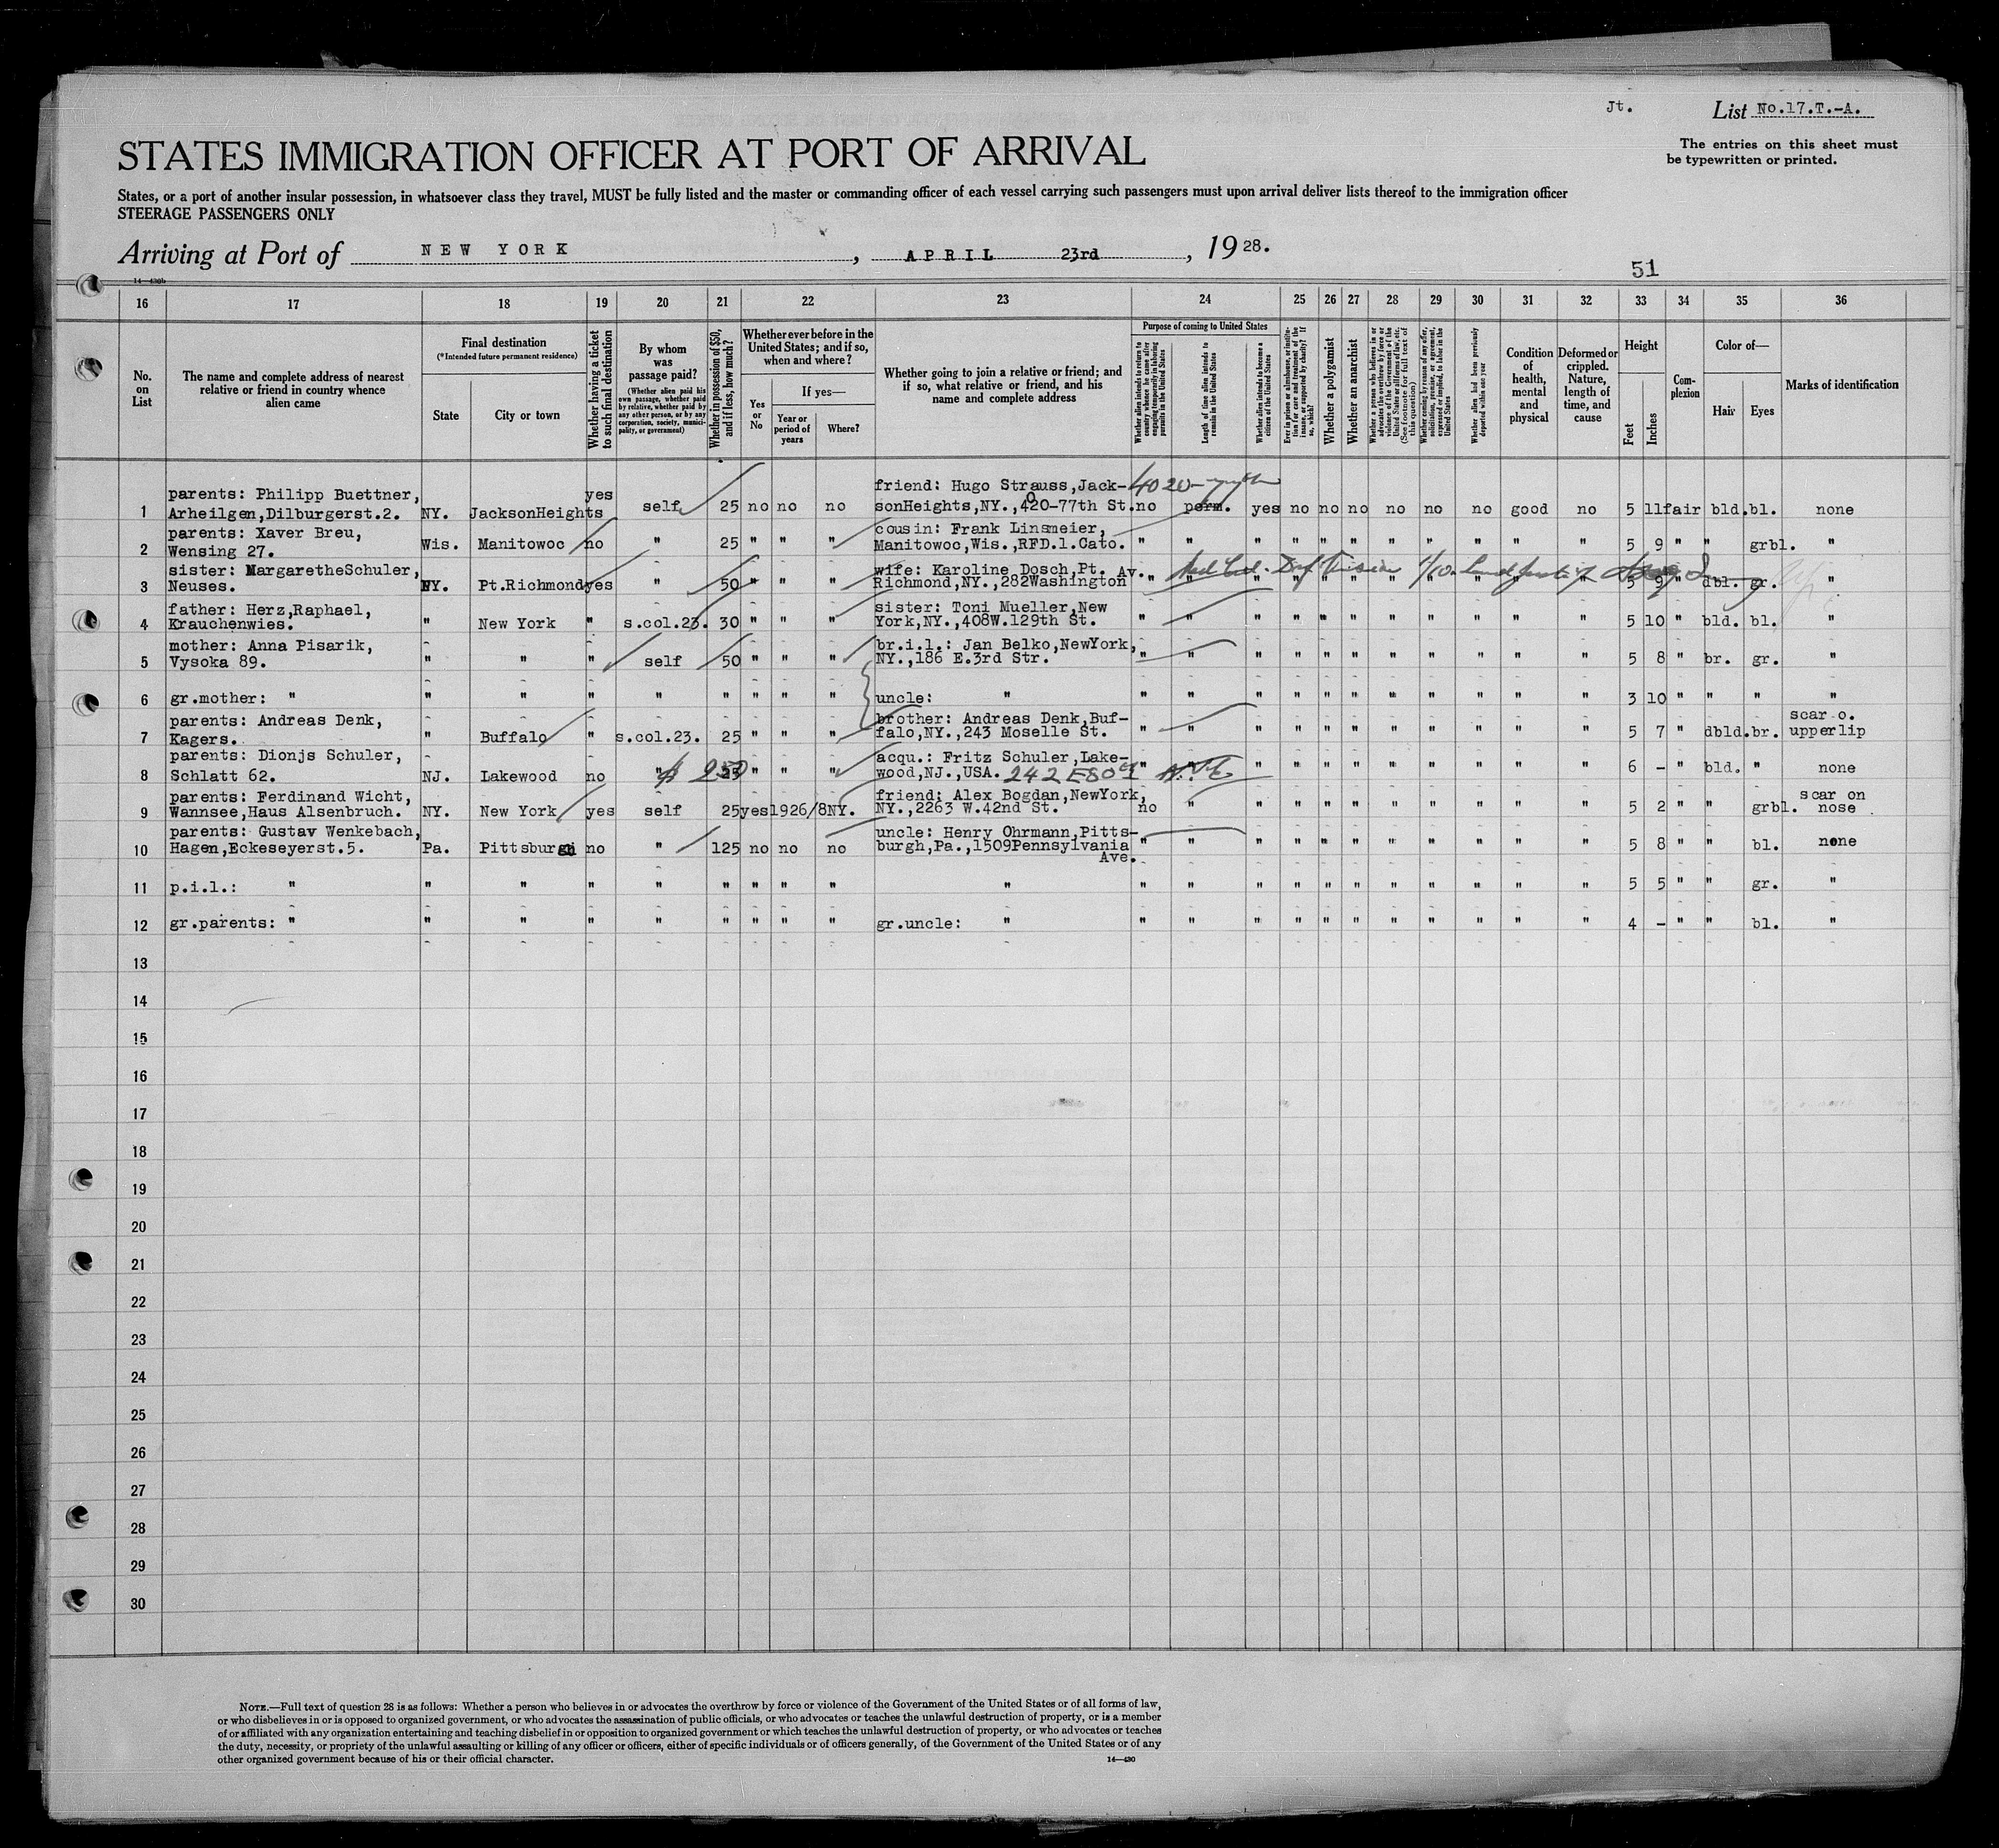 Jt.
List No.17.T.-A.
STATES IMMIGRATION OFFICER AT PORT OF ARRIVAL
The entries on this sheet must
be typewritten or printed.
States, or a port of another insular possession, in whatsoever class they travel, MUST be fully listed and the master or commanding officer of each vessel carrying such passengers must upon arrival deliver lists thereof to the immigration officer
STEERAGE PASSENGERS ONLY
Arriving at Port of NEW YORK, APRIL 23rd, 1928.
51
14—430b
16 17 18 19 20 21 22 23 24 25 26 27 28 29 30 31 32 33 34 35 36
No. on List
The name and complete address of nearest relative or friend in country whence alien came
Final destination
(*Intended future permanent residence)
State
City or town
Whether having a ticket to such final destination
By whom was passage paid?
(Whether alien paid his own passage, whether paid by relative, whether paid by any other person, or by any corporation, society, municipality, or government)
Whether in possession of $50, and if less, how much?
Whether ever before in the United States; and if so, when and where?
Yes or No
If yes—
Year or period of years
Where?
Whether going to join a relative or friend; and if so, what relative or friend, and his name and complete address
Purpose of coming to United States
Whether alien intends to return to country whence he came after engaging temporarily in laboring pursuits in the United States
Length of time alien intends to remain in the United States
Whether alien intends to become a citizen of the United States
Ever in prison or almshouse, or institution for care and treatment of the insane, or supported by charity? If so, which?
Whether a polygamist
Whether an anarchist
Whether a person who believes in or advocates the overthrow by force or violence of the Government of the United States or all forms of law, etc. (See footnote for full text of this question)
Whether coming by reason of any offer, solicitation, promise, or agreement, expressed or implied, to labor in the United States
Whether alien had been previously deported within one year
Condition of health, mental and physical
Deformed or crippled. Nature, length of time, and cause
Height
Feet
Inches
Complexion
Color of—
Hair
Eyes
Marks of identification
4020-
1 parents: Philipp Buettner, Arheilgen,Dilburgerst.2. NY. JacksonHeights yes self 25 no no no friend: Hugo Strauss,JacksonHeights,NY.,420-77th St. no perm. yes no no no no no no good no 5 11 fair bld. bl. none
2 parents: Xaver Breu, Wensing 27. Wis. Manitowoc no " 25 " " " cousin: Frank Linsmeier, Manitowoc,Wis.,RFD.1.Cato. " " " " " " " " " " " 5 9 " " grbl. "
3 sister: MargaretheSchuler, Neuses. NY. Pt.Richmond yes " 50 " " " wife: Karoline Dosch,Pt. Richmond,NY.,282Washington Av. " " " " " " " " " " " 5 9 " dbl. gr. "
4 father: Herz,Raphael, Krauchenwies. " New York " s.col.23. 30 " " " sister: Toni Mueller,New York,NY.,408W.129th St. " " " " " " " " " " " 5 10 " bld. bl. "
5 mother: Anna Pisarik, Vysoka 89. " " " self 50 " " " br.i.l.: Jan Belko,NewYork, NY.,186 E.3rd Str. " " " " " " " " " " " 5 8 " br. gr. "
6 gr.mother: " " " " " " " " " uncle: " " " " " " " " " " " " 3 10 " " " "
7 parents: Andreas Denk, Kagers. " Buffalo " s.col.23. 25 " " " brother: Andreas Denk,Buffalo,NY.,243 Moselle St. " " " " " " " " " " " 5 7 " dbld. br. scar o. upperlip
8 parents: Dionjs Schuler, Schlatt 62. NJ. Lakewood no " $ 250 25 " " " acqu.: Fritz Schuler,Lakewood,NJ.,USA. 242 E80th N.Y. " " " " " " " " " 6 - " bld. " none
9 parents: Ferdinand Wicht, Wannsee,Haus Alsenbruch. NY. New York yes self 25 yes 1926/8 NY. friend: Alex Bogdan,NewYork, NY.,2263 W.42nd St. no " " " " " " " " " " 5 2 " " grbl. scar on nose
10 parents: Gustav Wenkebach, Hagen,Eckeseyerst.5. Pa. Pittsburgh no " 125 no no no uncle: Henry Ohrmann,Pittsburgh,Pa.,1509Pennsylvania Ave. " " " " " " " " " " " 5 8 " " bl. none
11 p.i.l.: " " " " " " " " " " " " " " " " " " " " " " 5 5 " " gr. "
12 gr.parents: " " " " " " " " " gr.uncle: " " " " " " " " " " " " 4 - " " bl. "
13
14
15
16
17
18
19
20
21
22
23
24
25
26
27
28
29
30
NOTE.—Full text of question 28 is as follows: Whether a person who believes in or advocates the overthrow by force or violence of the Government of the United States or of all forms of law,
or who disbelieves in or is opposed to organized government, or who advocates the assassination of public officials, or who advocates or teaches the unlawful destruction of property, or is a member
of or affiliated with any organization entertaining and teaching disbelief in or opposition to organized government or which teaches the unlawful destruction of property, or who advocates or teaches
the duty, necessity, or propriety of the unlawful assaulting or killing of any officer or officers, either of specific individuals or of officers generally, of the Government of the United States or of any
other organized government because of his or their official character.
14—430